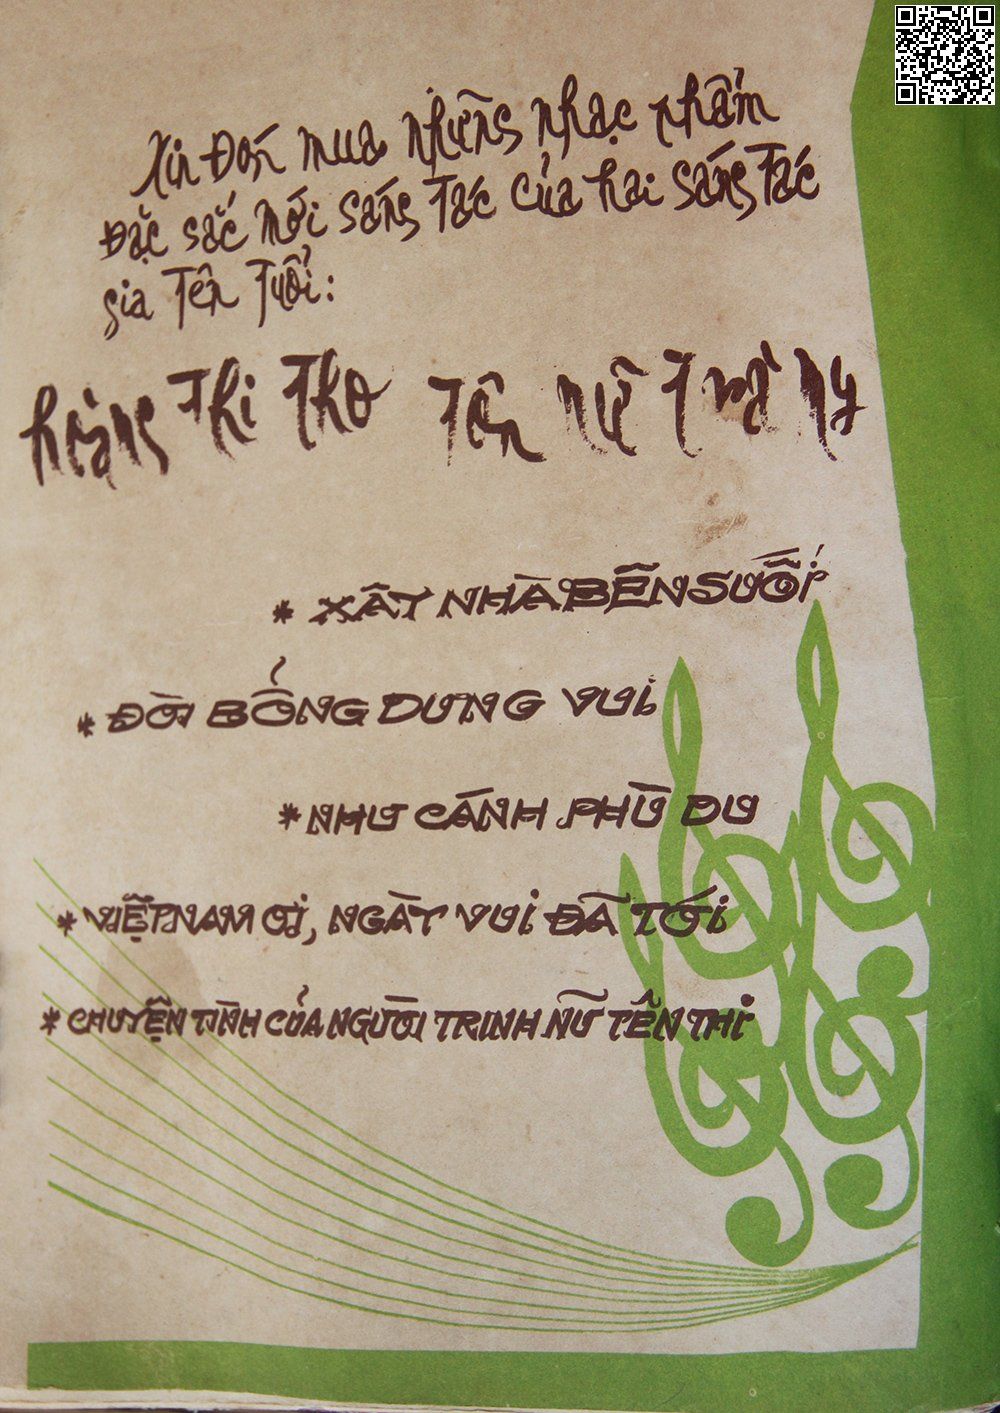 Xin Đón mua những nhạc phẩm
Đặc sắc mới sáng tác của hai sáng tác
gia tên tuổi:
hoàng thi thơ tôn nữ trà my
* XÂY NHÀ BÊN SUỐI
* ĐỜI BỖNG DƯNG VUI
* NHƯ CÁNH PHÙ DU
* VIỆT NAM ƠI, NGÀY VUI ĐÃ TỚI
* CHUYỆN TÌNH CỦA NGƯỜI TRINH NỮ TÊN THI